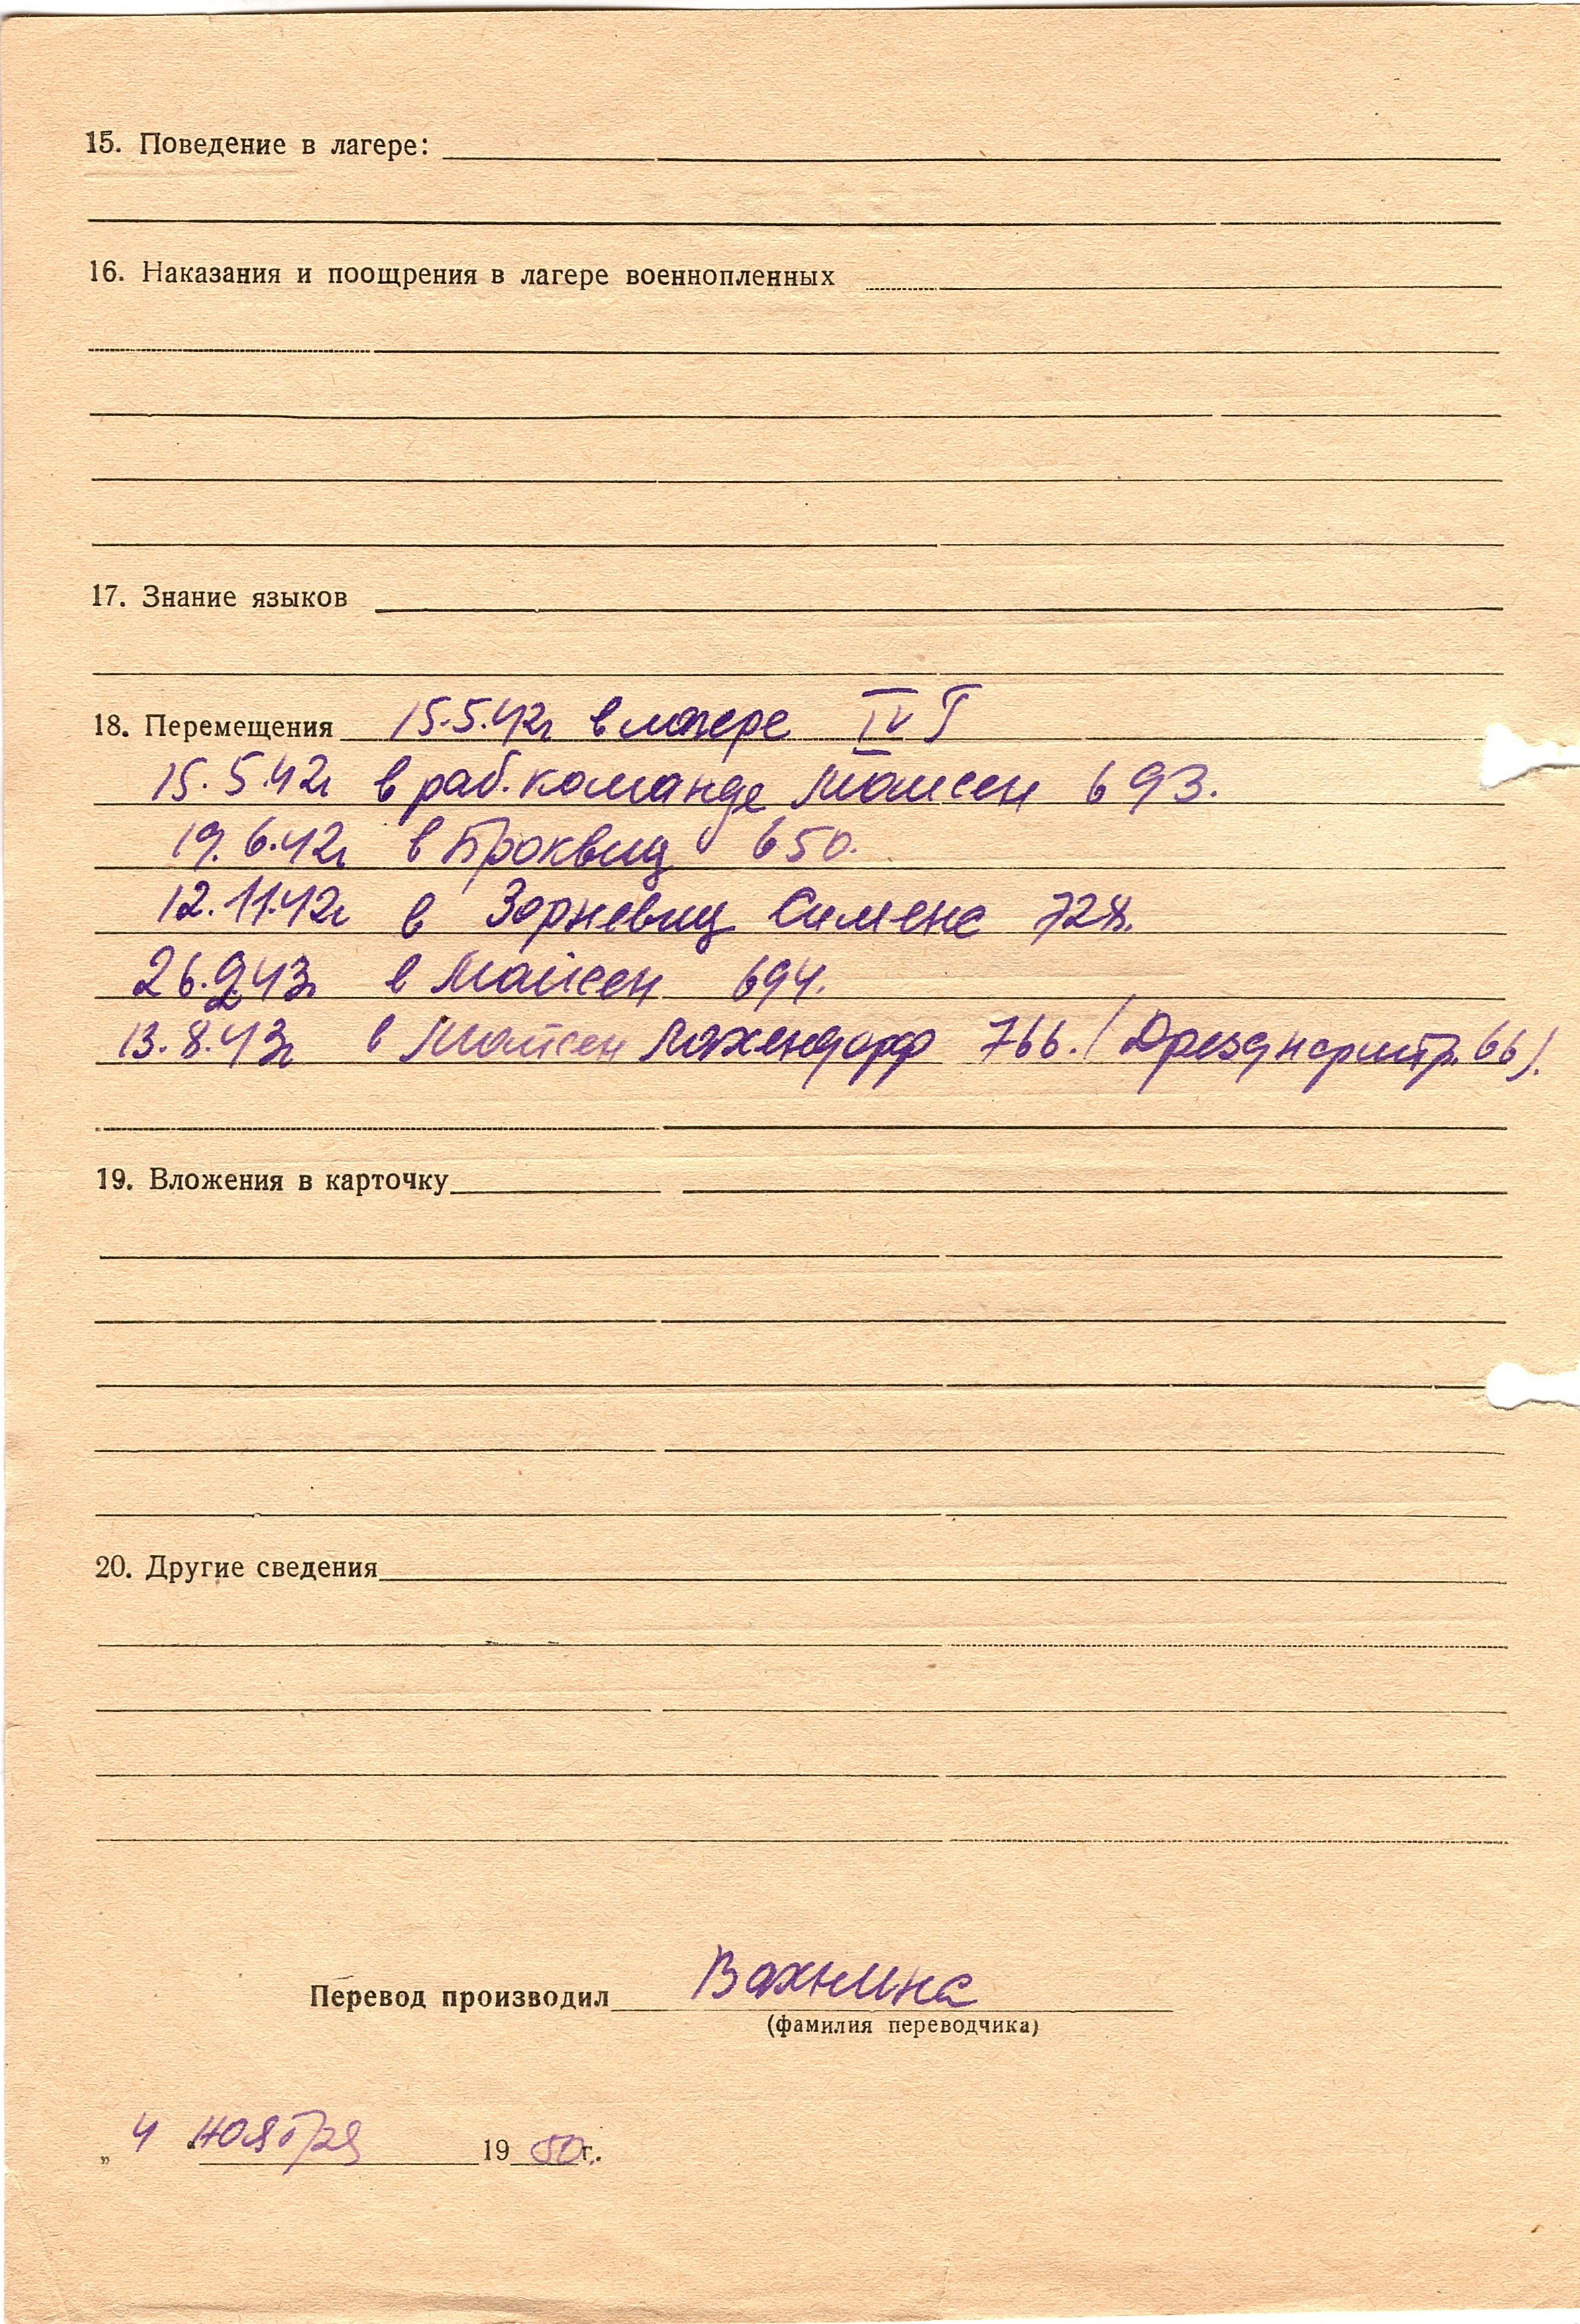 15. Поведение в лагере:
16. Наказания и поощрения в лагере военнопленных
17. Знание языков
18. Перемещения 15.5.42г в лагере IV Г
15.5.42г в раб. команде Майсен 693.
19.6.42г в Броквиц 650.
12.11.42г в Зорневиц Сименс 728.
26.2.43г в Майсен 694.
13.8.43г в Майсен 766. (Дрезднерштр. 66).
19. Вложения в карточку
20. Другие сведения
Перевод производил Вахнина
(фамилия переводчика)
„ 4 " ноября 1950г.